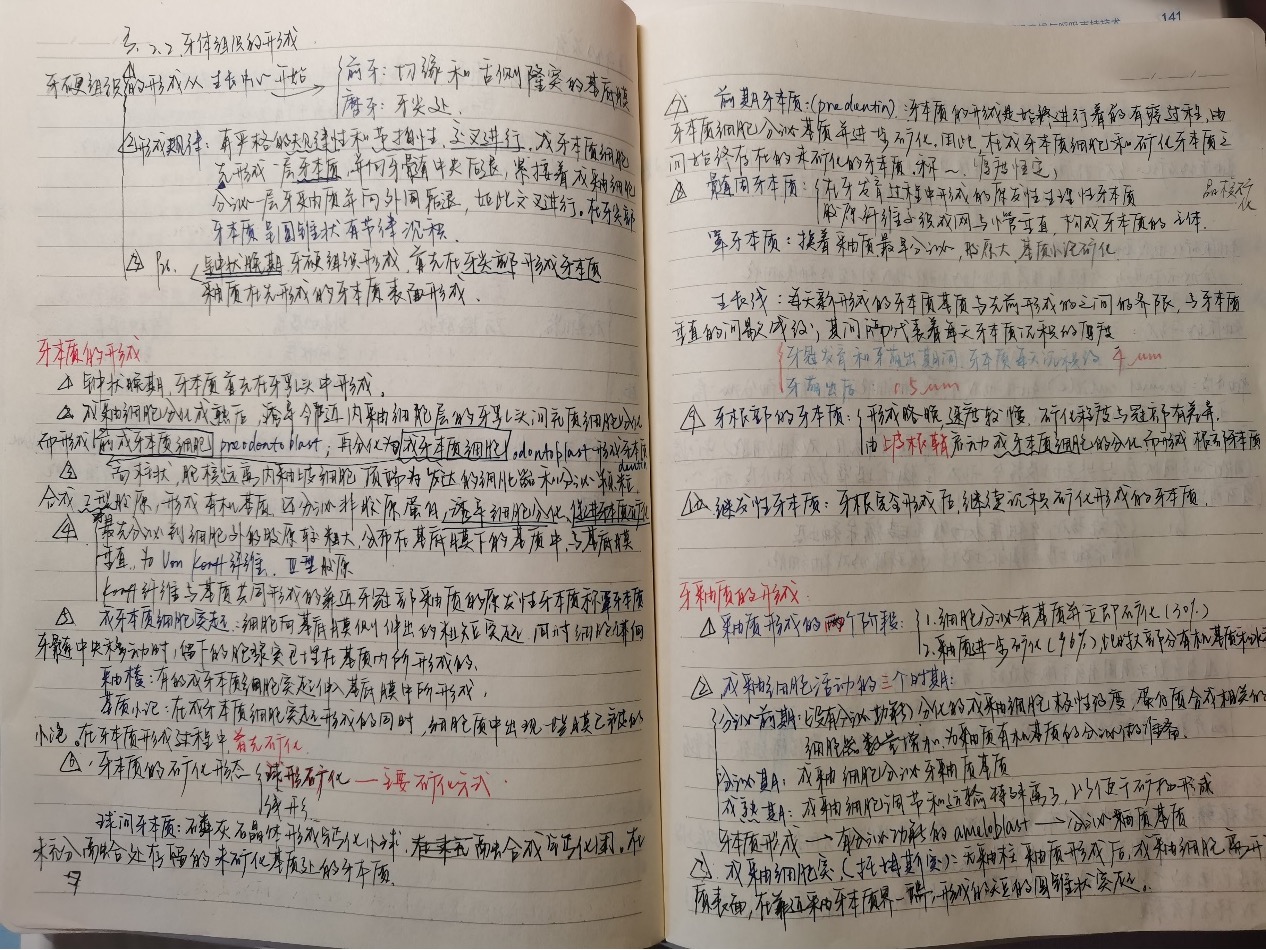 2.2 牙体组织的形成
牙硬组织的形成从生长中心开始 前牙:切缘和舌侧隆突的基底膜
磨牙:牙尖处
形成规律:有严格的规律性和节拍性,交叉进行。成牙本质细胞
先形成一层牙本质,并向牙髓中央后退,紧接着成釉细胞
分泌一层牙釉质并向外周后退,如此交叉进行。在牙尖部
牙本质呈圆锥状有节律沉积.
钟状晚期 牙硬组织形成,首先在牙尖部形成牙本质
釉质在先形成的牙本质表面形成.
牙本质的形成
钟状晚期,牙本质首先在牙乳头中形成.
成釉细胞分化成熟后,诱导邻近内釉细胞层的牙乳头间充质细胞分化
而形成前成牙本质细胞 preodontoblast;再分化为成牙本质细胞 odontoblast形成牙本质
dentin
高柱状,胞核远离内釉上皮细胞 顶端有发达的细胞器和分泌颗粒.
合成Ⅰ型胶原,形成有机基质 还分泌非胶原蛋白,诱导细胞分化、促进牙本质矿化
最先分泌到细胞外的胶原较粗大,分布在基底膜下的基质中,与基底膜
垂直,为Von Korff纤维. Ⅲ型胶原
Korff纤维与基质共同形成的靠近牙冠部釉质的原发性牙本质称罩牙本质
成牙本质细胞突起:细胞向基底膜侧伸出的粗短突起 同时细胞体向
牙髓中央移动时,留下的胞浆突已埋在基质内所形成的.
釉梭:有的成牙本质细胞突起伸入基底膜中所形成.
基质小泡:在成牙本质细胞突起形成的同时,细胞质中出现一些膜包被的
小泡.在牙本质形成过程中首先矿化
牙本质的矿化形态 球形矿化——主要矿化方式
线形
球间牙本质:羟磷灰石晶体形成钙化小球,在未充分融合成钙化团.在
未充分融合处存留的未矿化基质处的牙本质.
141
前期牙本质:(predentin):牙本质的形成是始终进行着的有序过程,由
牙本质细胞分泌基质并进一步矿化.因此,在成牙本质细胞和矿化牙本质之
间始终存在的未矿化的牙本质.称~.厚度恒定;
髓周牙本质:在牙发育过程中形成的原发性生理性牙本质 晶核矿
化
胶原纤维交织成网与小管垂直,构成牙本质的主体.
罩牙本质:接着釉质最早分泌,胶原大 基质小泡矿化
生长线:每天新形成的牙本质基质与先前形成的之间的界限,与牙本质
垂直的间歇线纹;其间隔代表着每天牙本质沉积的厚度
牙冠发育和牙萌出期间,牙本质每天沉积约 4 μm
牙萌出后:0.5 μm
牙根部的牙本质:形成略晚 速度较慢,矿化程度与冠部有差异.
由上皮根鞘启动成牙本质细胞的分化而形成根部牙本质
继发性牙本质:牙根完全形成后继续沉积矿化形成的牙本质.
牙釉质的形成
釉质形成的两个阶段:1.细胞分泌有基质并立即矿化(30%)
2.釉质进一步矿化(96%),此时大部分有机基质和水
成釉细胞活动的三个时期:
分泌前期:(没有分泌功能)分化的成釉细胞极性改变,蛋白质合成相关的
细胞器数量增加.为釉质有机基质的分泌做准备.
分泌期:成釉细胞分泌牙釉质基质
成熟期:成釉细胞调节和运输特殊离子,以便于矿物形成
牙本质形成 → 有分泌功能的ameloblast → 分泌釉质基质
成釉细胞突(托姆斯突):无釉柱釉质形成后,成釉细胞离开
质表面,在靠近釉牙本质界一端,形成的短的圆锥状突起.